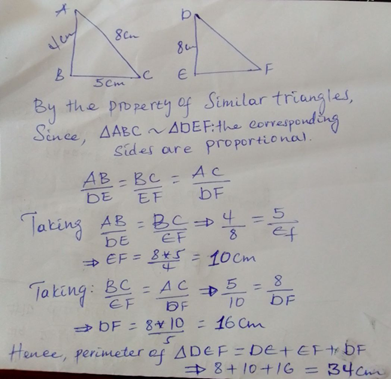 A
4cm
8cm
B
5cm
C
D
8cm
E
F
By the property of Similar triangles,
Since, △ABC ~ △DEF: the corresponding
sides are proportional.
AB/DE = BC/EF = AC/DF
Taking AB/DE = BC/EF ⇒ 4/8 = 5/ef
⇒ EF = 8*5/4 = 10cm
Taking: BC/EF = AC/DF ⇒ 5/10 = 8/DF
⇒ DF = 8*10/5 = 16cm
Hence, perimeter of △DEF = DE + EF + DF
⇒ 8+10+16 = 34cm